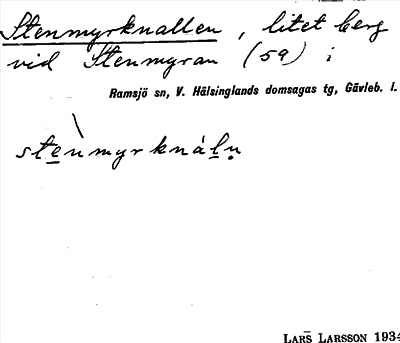 Stenmyrknallen, litet berg
vid Stenmyran (59) i
Ramsjö sn, V. Hälsinglands domsagas tg, Gävleb. l.
ste̲nmyrknàl̲n̥
LARS LARSSON 1934